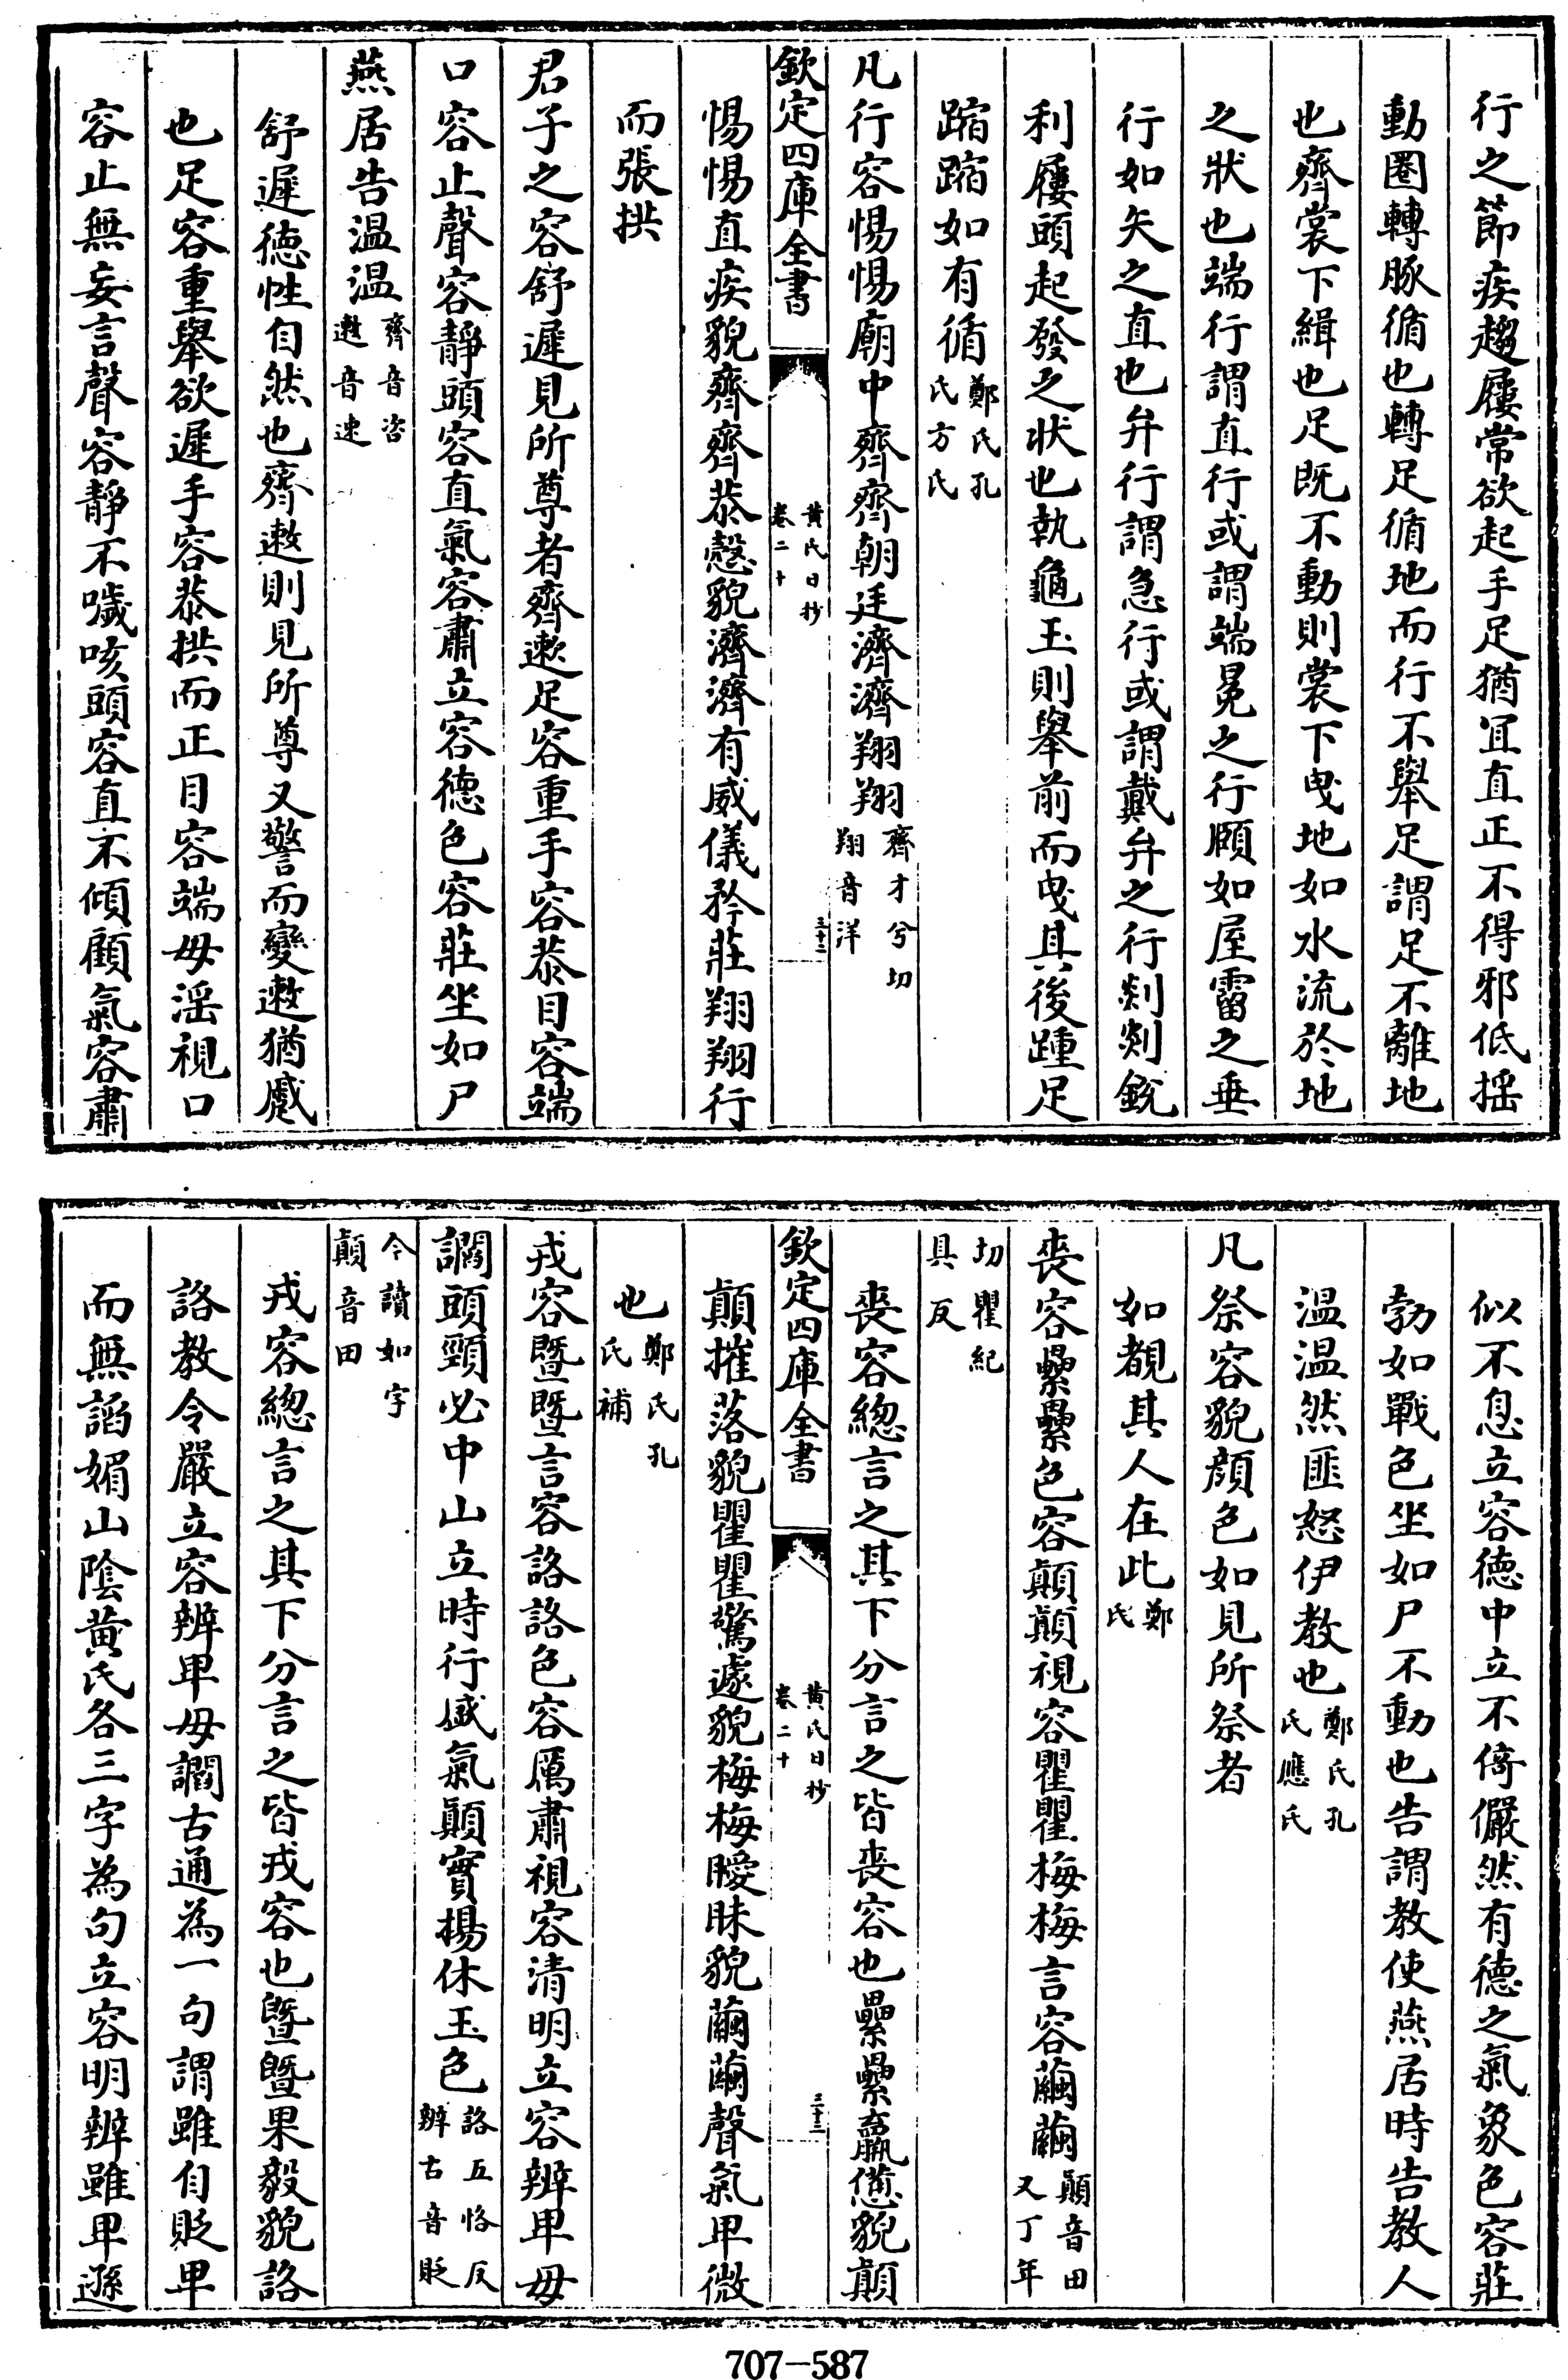 行之節疾趨屨常欲起手足猶冝直正不得邪低揺
動圏轉豚循也轉足循地而行不舉足謂足不離地
也齊裳下緝也足既不動則裳下曳地如水流於地
之狀也端行謂直行或謂端冕之行頤如屋霤之垂
行如矢之直也弁行謂急行或謂戴弁之行剡剡銳
利屨頭起發之狀也執龜玉則舉前而曳其後踵足
蹜蹜如有循鄭氏孔氏方氏
凡行容惕惕廟中齊齊朝廷濟濟翔翔齊才兮切翔音洋
欽定四庫全書 黃氏日抄卷二十 三十二
惕惕直疾貌齊齊恭慤貌濟濟有威儀矜莊翔翔行
而張拱
君子之容舒遲見所尊者齊遬足容重手容恭目容端
口容止聲容靜頭容直氣容肅立容德色容莊坐如尸
燕居告温温齊音咨遬音速
舒遲德性自然也齊遬則見所尊又警而變遬猶蹙
也足容重舉欲遲手容恭拱而正目容端毋淫視口
容止無妄言聲容靜不噦咳頭容直不傾顧氣容肅
似不息立容德中立不倚儼然有德之氣象色容莊
勃如戰色坐如尸不動也告謂教使燕居時告教人
溫溫然匪怒伊教也鄭氏孔氏應氏
凡祭容貌顔色如見所祭者
如覩其人在此鄭氏
喪容纍纍色容顛顛視容瞿瞿梅梅言容繭繭顛音田又丁年
切瞿紀具反
喪容緫言之其下分言之皆喪容也纍纍羸憊貌顛
欽定四庫全書 黃氏日抄卷二十 三十三
顛摧落貌瞿瞿驚遽貌梅梅瞹昧貌繭繭聲氣卑微
也鄭氏孔氏補
戎容暨暨言容詻詻色容厲肅視容清明立容辨卑毋
讇頭頸必中山立時行盛氣顛實揚休玉色詻五恪反辨古音貶
今讀如字顛音田
戎容緫言之其下分言之皆戎容也暨暨果毅貌詻
詻教令嚴立容辨卑毋讇古通為一句謂雖自貶卑
而無諂媚山陰黃氏各三字為句立容明辨雖卑遜
707-587